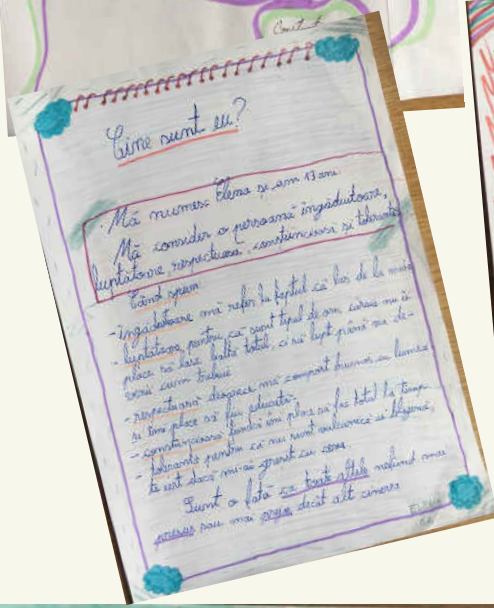 Cine sunt eu?
Mă numesc Elena și am 13 ani.
Mă consider o persoană îngăduitoare,
luptătoare, respectuoasă, conștiincioasă și tolerantă
Când spun:
-îngăduitoare mă refer la faptul că las de la mine
- luptătoare pentru că sunt tipul de om căruia nu îi
place să lase baltă totul, ci să lupt până va de-
veni cum trebuie
-respectuoasă deoarece mă comport frumos cu lumea
și îmi place să fiu educată.
- conștiincioasă fiindcă îmi place să fac totul la timp
- tolerantă pentru că nu sunt
dacă mi-ai greșit cu ceva.
Sunt o fată ca toate altele nefiind mai
presus sau mai prejos decât alt cineva